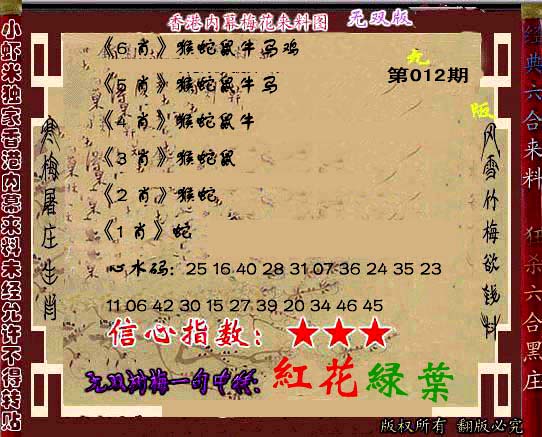 香港内幕梅花来料图 无双版
《6 肖》猴蛇鼠牛马鸡
第012期
《5 肖》猴蛇鼠牛马
版
《4 肖》猴蛇鼠牛
《3 肖》猴蛇鼠
《2 肖》猴蛇
《1 肖》蛇
心水码: 25 16 40 28 31 07 36 24 35 23
11 06 42 30 15 27 39 20 34 46 45
信心指数: ★★★
一句中特: 紅花綠葉
版权所有 翻版必究
小虾米独家香港内幕来料未经允许不得转贴
寒梅屠庄生肖
风雪竹梅欲钱料
经典六合来料
狂杀六合黑庄